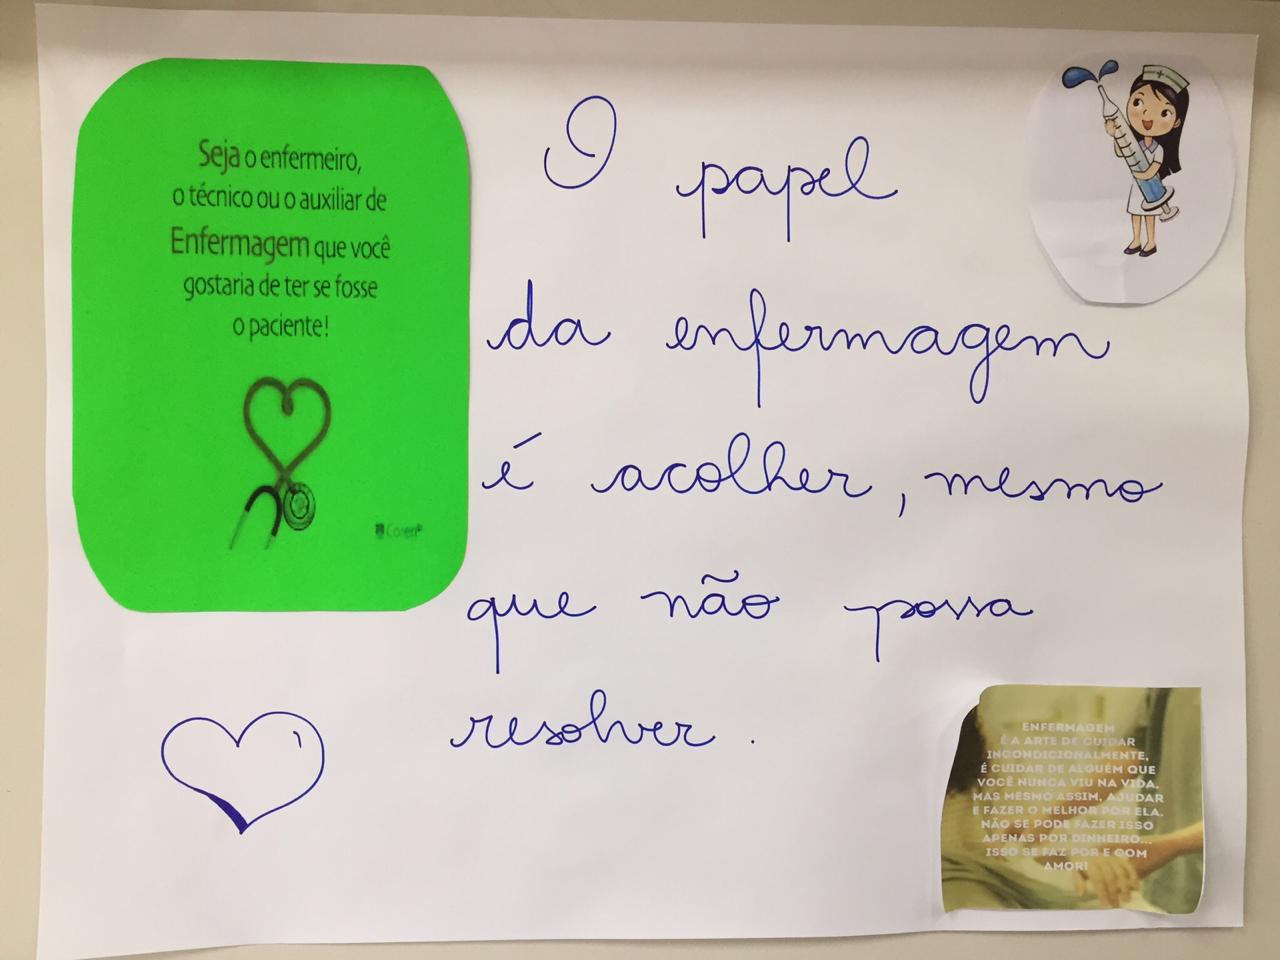 Seja o enfermeiro,
o técnico ou o auxiliar de
Enfermagem que você
gostaria de ter se fosse
o paciente!
Coren
O papel
da enfermagem
é acolher, mesmo
que não possa
resolver.
ENFERMAGEM
É A ARTE DE CUIDAR
INCONDICIONALMENTE,
É CUIDAR DE ALGUÉM QUE
VOCÊ NUNCA VIU NA VIDA,
MAS MESMO ASSIM, AJUDAR
E FAZER O MELHOR POR ELA.
NÃO SE PODE FAZER ISSO
APENAS POR DINHEIRO...
ISSO SE FAZ POR E COM
AMOR!